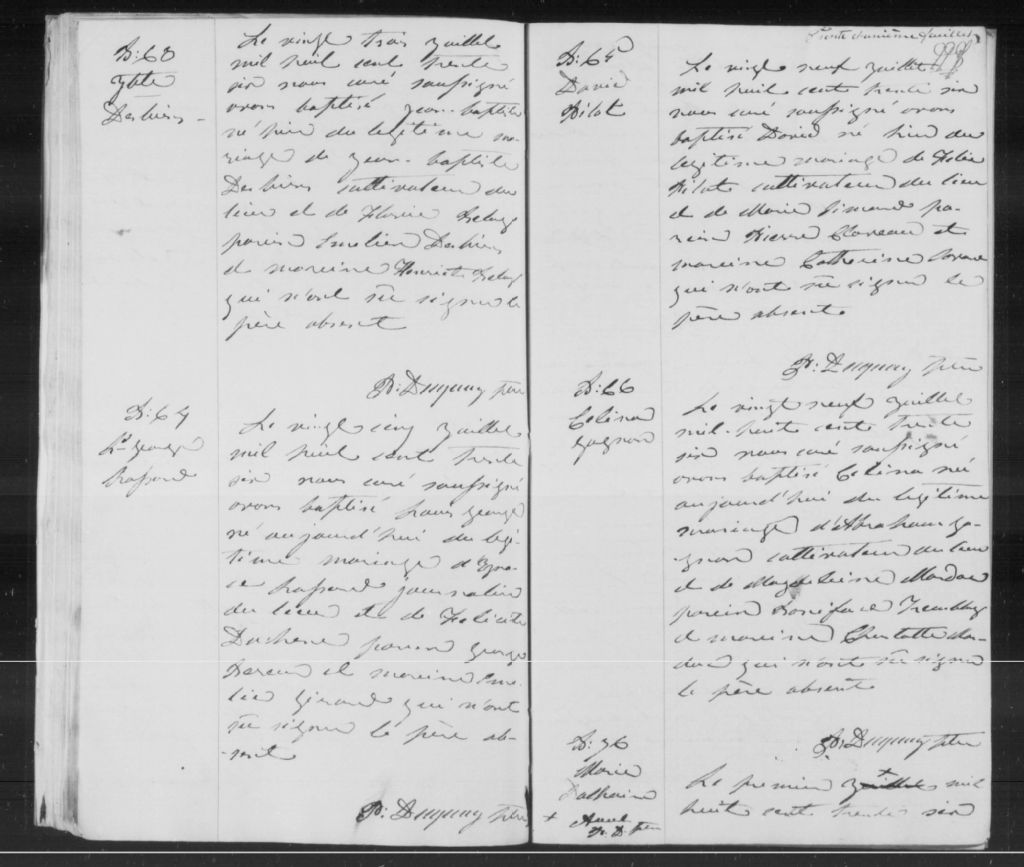 B: 63
Jbte
Desbiens
Le vingt trois juillet
mil huit cent trente
six nous curé soussigné
avons baptisé jean-baptiste
né hier du légitime ma-
riage de jean-baptiste
Desbiens cultivateur du
lieu et de Flavie
parein Emelien Desbiens
et mareine Henriette
qui n'ont su signer le
père absent
B: Duguay ptre
B: 64
Ls George
Le vingt cinq juillet
mil huit cent trente
six nous curé soussigné
avons baptisé Louis George
né aujourd'hui du légi-
time mariage d'Igna-
ce journalier
du lieu et de Felicité
Duchene parein George
et mareine Eme-
lie Girard qui n'ont
su signer le père ab-
-sent
P: Duguay ptre
Trente deuxième feuillet
B: 65
David
Pilot
Le vingt neuf juillet
mil huit cent trente six
nous curé soussigné avons
baptisé David né hier du
légitime mariage de
Pilote cultivateur du lieu
et de Marie Simard pa-
rein Pierre et
mareine Catherine
qui n'ont su signer le
père absent
P: Duguay ptre
B: 66
Celina
Gagnon
Le vingt neuf juillet
mil-huit cent trente
six nous curé soussigné
avons baptisé Celina né
aujourd'hui du légitime
mariage d'Abraham Ga-
gnon cultivateur du lieu
et de Magdeleine
parein Boniface Tremblay
et mareine Charlotte
qui n'ont su signer
le père absent
P: Duguay ptre
Marie
+
Le premier juillet + mil
huit cent trente six